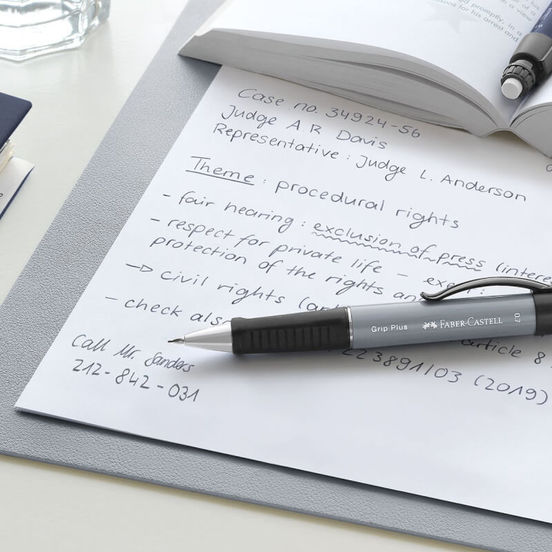 Case no. 34924-56
Judge A R Davis
Representative: Judge L. Anderson
Theme: procedural rights
- fair hearing: exclusion of press (intere
- respect for private life -
protection of the rights an
→ civil rights (ar
- check als
article 8
223891/03 (2019)
Call Mr. Sanders
212-842-031
Grip Plus FABER-CASTELL 0.7